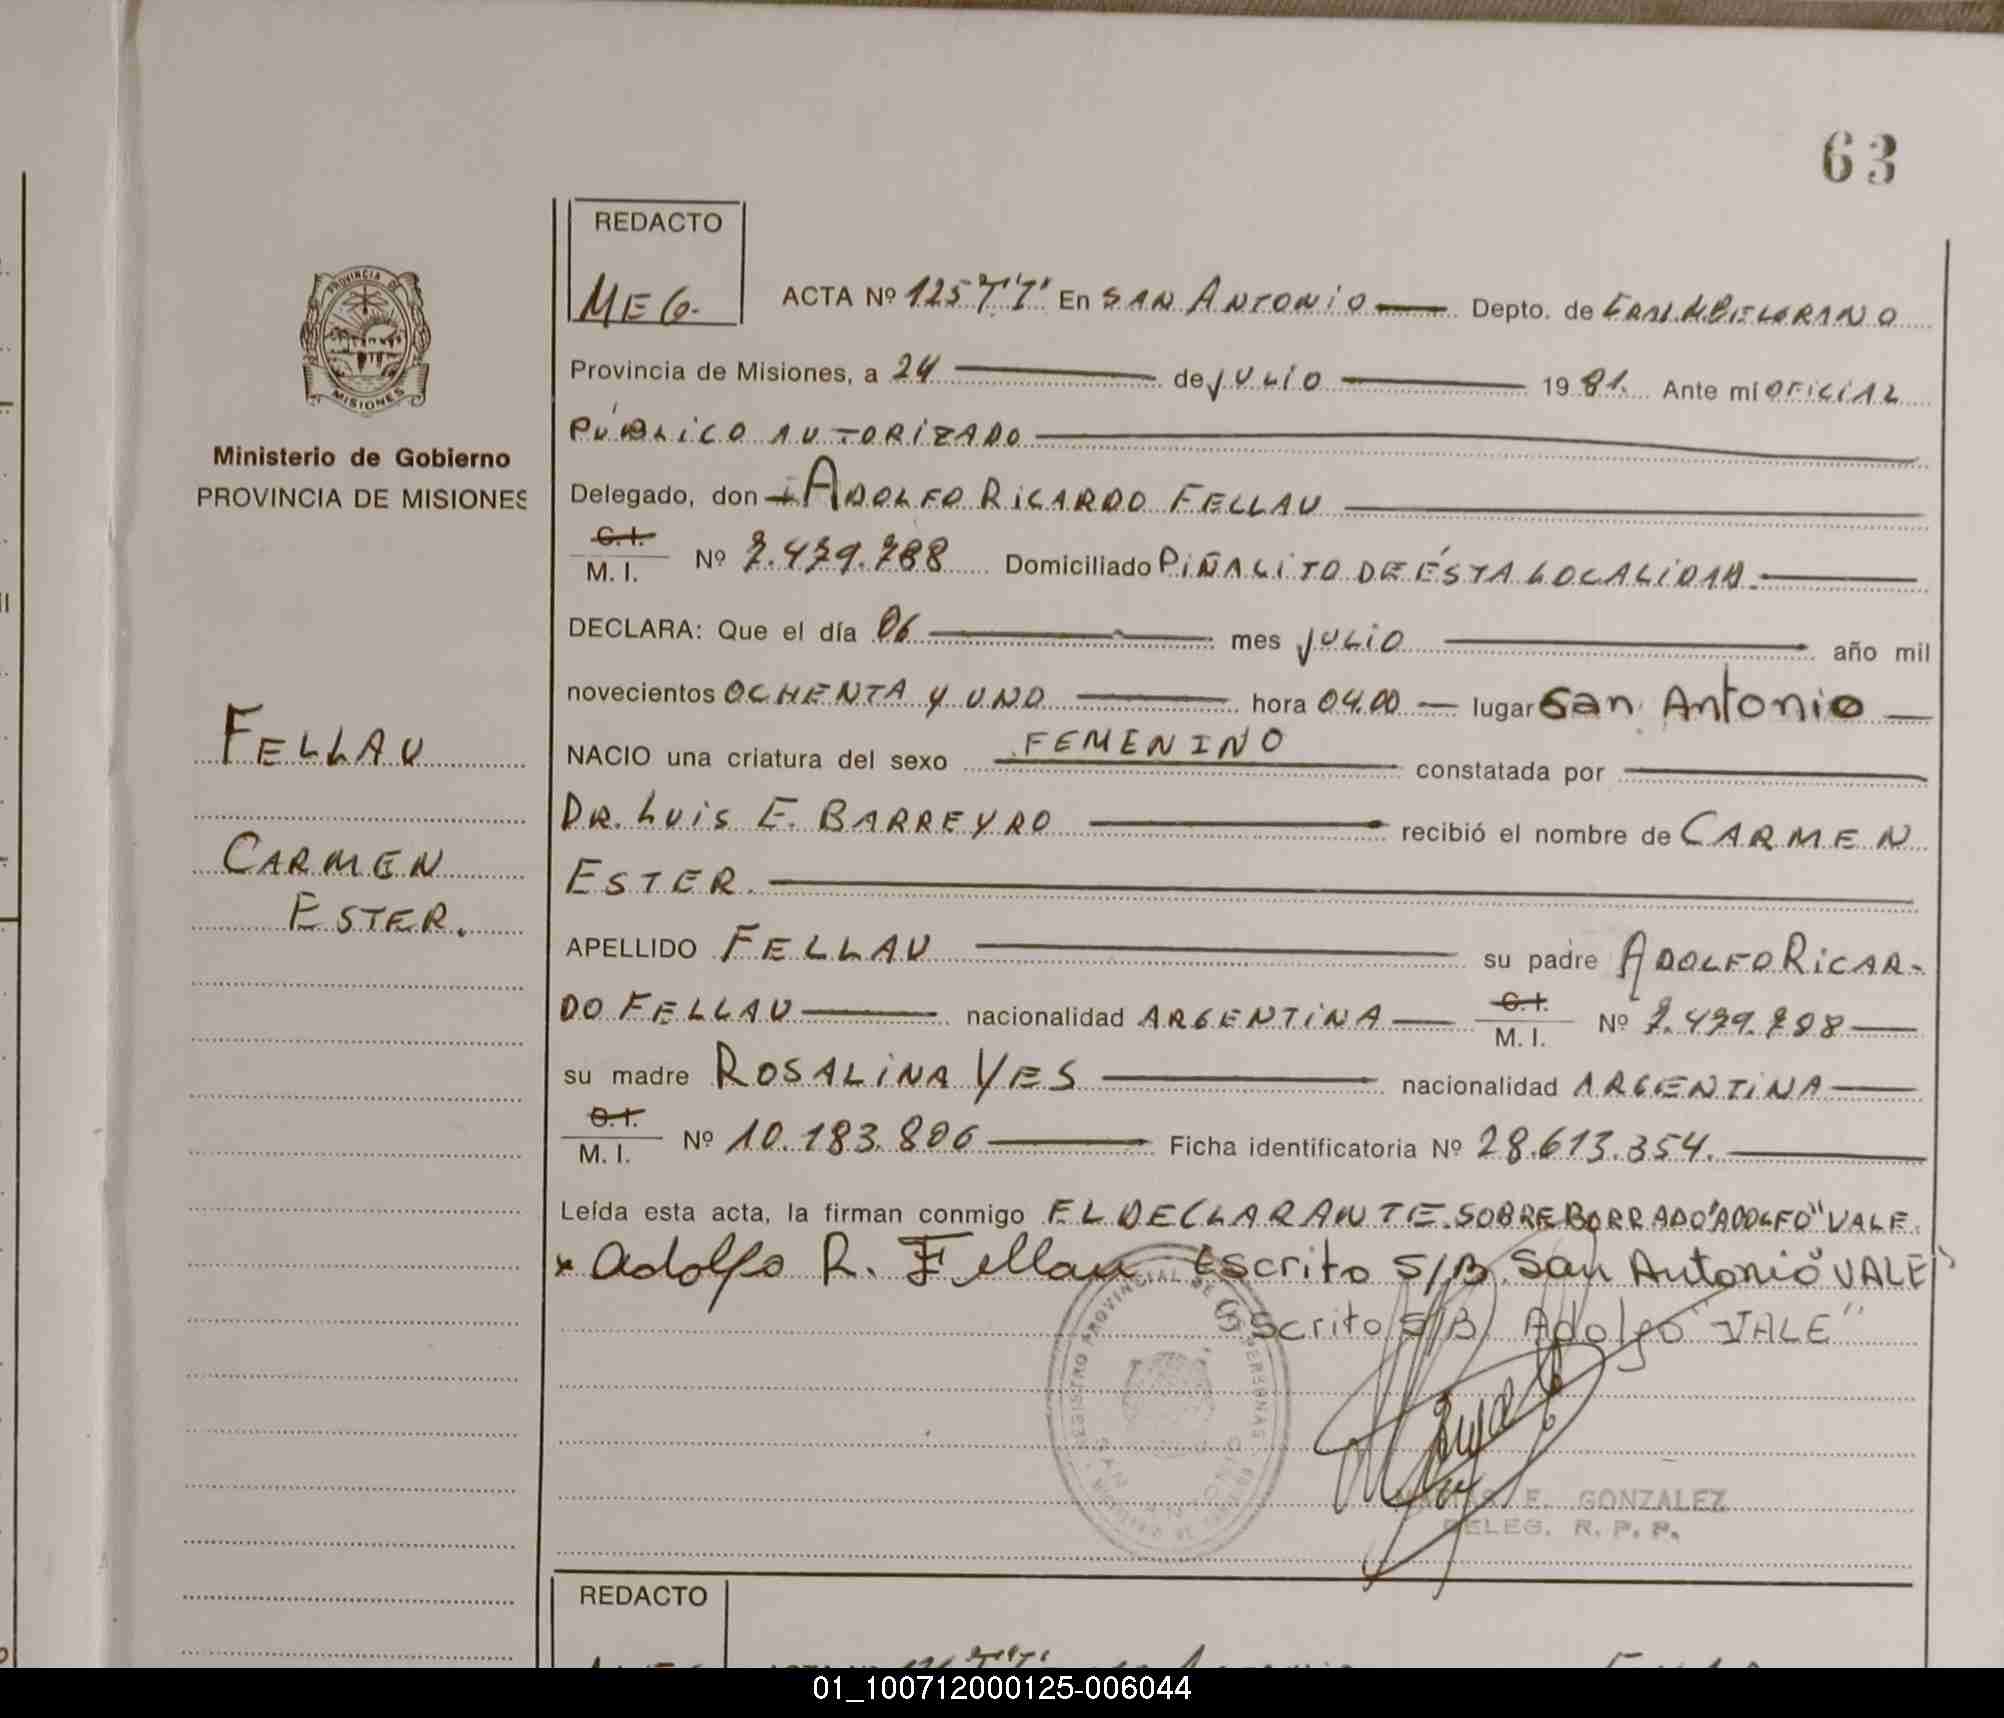 63
REDACTO
MEG.
ACTA Nº 125 "T" En SAN ANTONIO Depto. de GRAL M BELGRANO
Provincia de Misiones, a 24 de JULIO 1981. Ante mí OFICIAL
PÚBLICO AUTORIZADO
Delegado, don ADOLFO RICARDO FELLAU
C.I.
M. I. Nº 7.479.788 Domiciliado PIÑALITO DE ÉSTA LOCALIDAD.
DECLARA: Que el día 06 mes JULIO año mil
novecientos OCHENTA Y UNO hora 04.00 lugar San Antonio
NACIO una criatura del sexo FEMENINO constatada por
DR. LUIS E. BARREYRO recibió el nombre de CARMEN
ESTER.
APELLIDO FELLAU su padre ADOLFO RICAR-
DO FELLAU nacionalidad ARGENTINA C.I. M. I. Nº 7.479.788
su madre ROSALINA YES nacionalidad ARGENTINA
C.I.
M. I. Nº 10.183.806 Ficha identificatoria Nº 28.613.354.
Leída esta acta, la firman conmigo EL DECLARANTE. SOBREBORRADO "ADOLFO" VALE.
x Adolfo R. Fellau Escrito S/B San Antonio VALE"
Escrito S/B Adolfo "VALE"
REGISTRO PROVINCIAL DE LAS PERSONAS
SAN ANTONIO
MINISTERIO DE GOBIERNO
F. GONZALEZ
DELEG. R. P. P.
PROVINCIA DE
MISIONES
Ministerio de Gobierno
PROVINCIA DE MISIONES
FELLAU
CARMEN
ESTER.
REDACTO
01_100712000125-006044